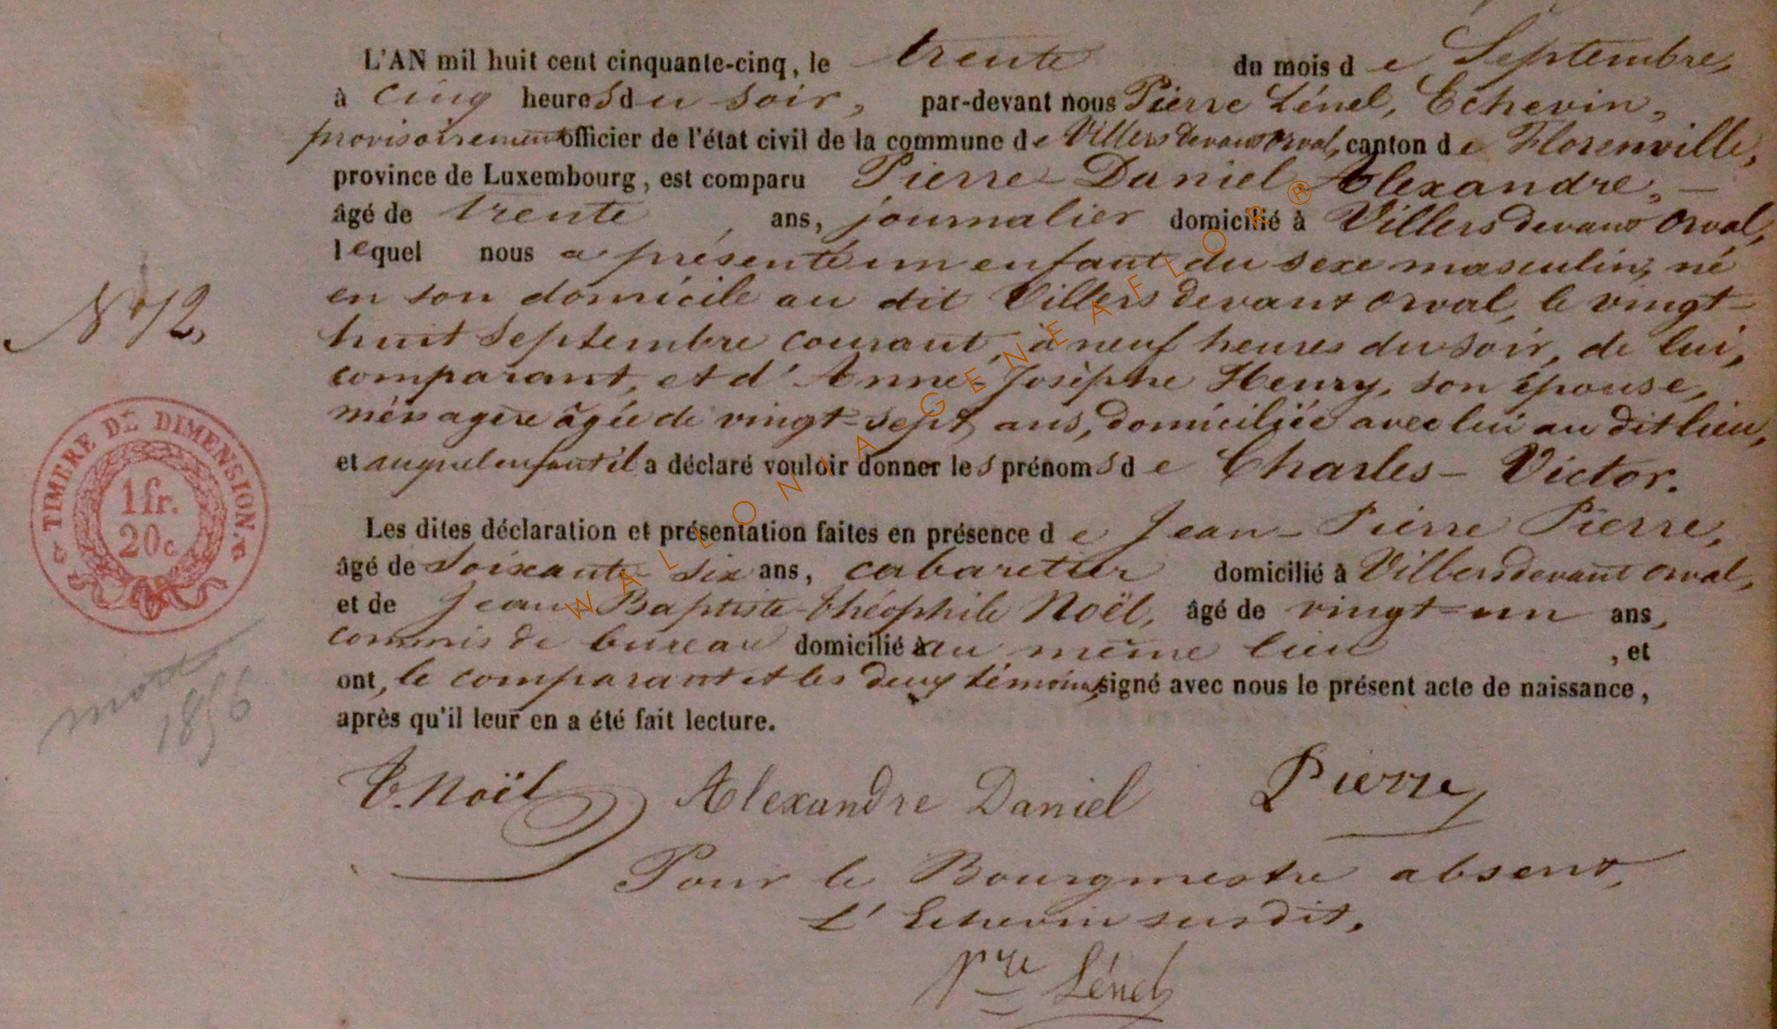 L'AN mil huit cent cinquante-cinq, le trente du mois de Septembre,
à cinq heures du soir, par-devant nous Pierre Lénel, Echevin,
provisoirement officier de l'état civil de la commune de Villers devant Orval, canton de Florenville,
province de Luxembourg, est comparu Pierre-Daniel Alexandre, —
âgé de trente ans, journalier domicilié à Villers devant Orval,
lequel nous a présenté un enfant du sexe masculin, né
en son domicile au dit Villers devant Orval, le vingt-
huit Septembre courant, à neuf heures du soir, de lui,
comparant, et d'Anne Josèphe Henry, son épouse,
ménagère âgée de vingt-sept ans, domiciliée avec lui au dit lieu,
et auquel enfant il a déclaré vouloir donner les prénoms de Charles-Victor.
N° 12,
Les dites déclaration et présentation faites en présence de Jean-Pierre Pierre,
âgé de soixante-six ans, cabaretier domicilié à Villers devant Orval,
et de Jean Baptiste-théophile Noël, âgé de vingt-un ans,
commis de bureau domicilié au même lieu, et
ont, le comparant et les deux témoins, signé avec nous le présent acte de naissance,
après qu'il leur en a été fait lecture.
TIMBRE DE DIMENSION.
1 fr.
20 c
mort
1856
T. Noël Alexandre Daniel Pierre
Pour le Bourgmestre absent,
L'Echevin susdit,
Pre Lénel
WALLONIA GENEAFLOR®